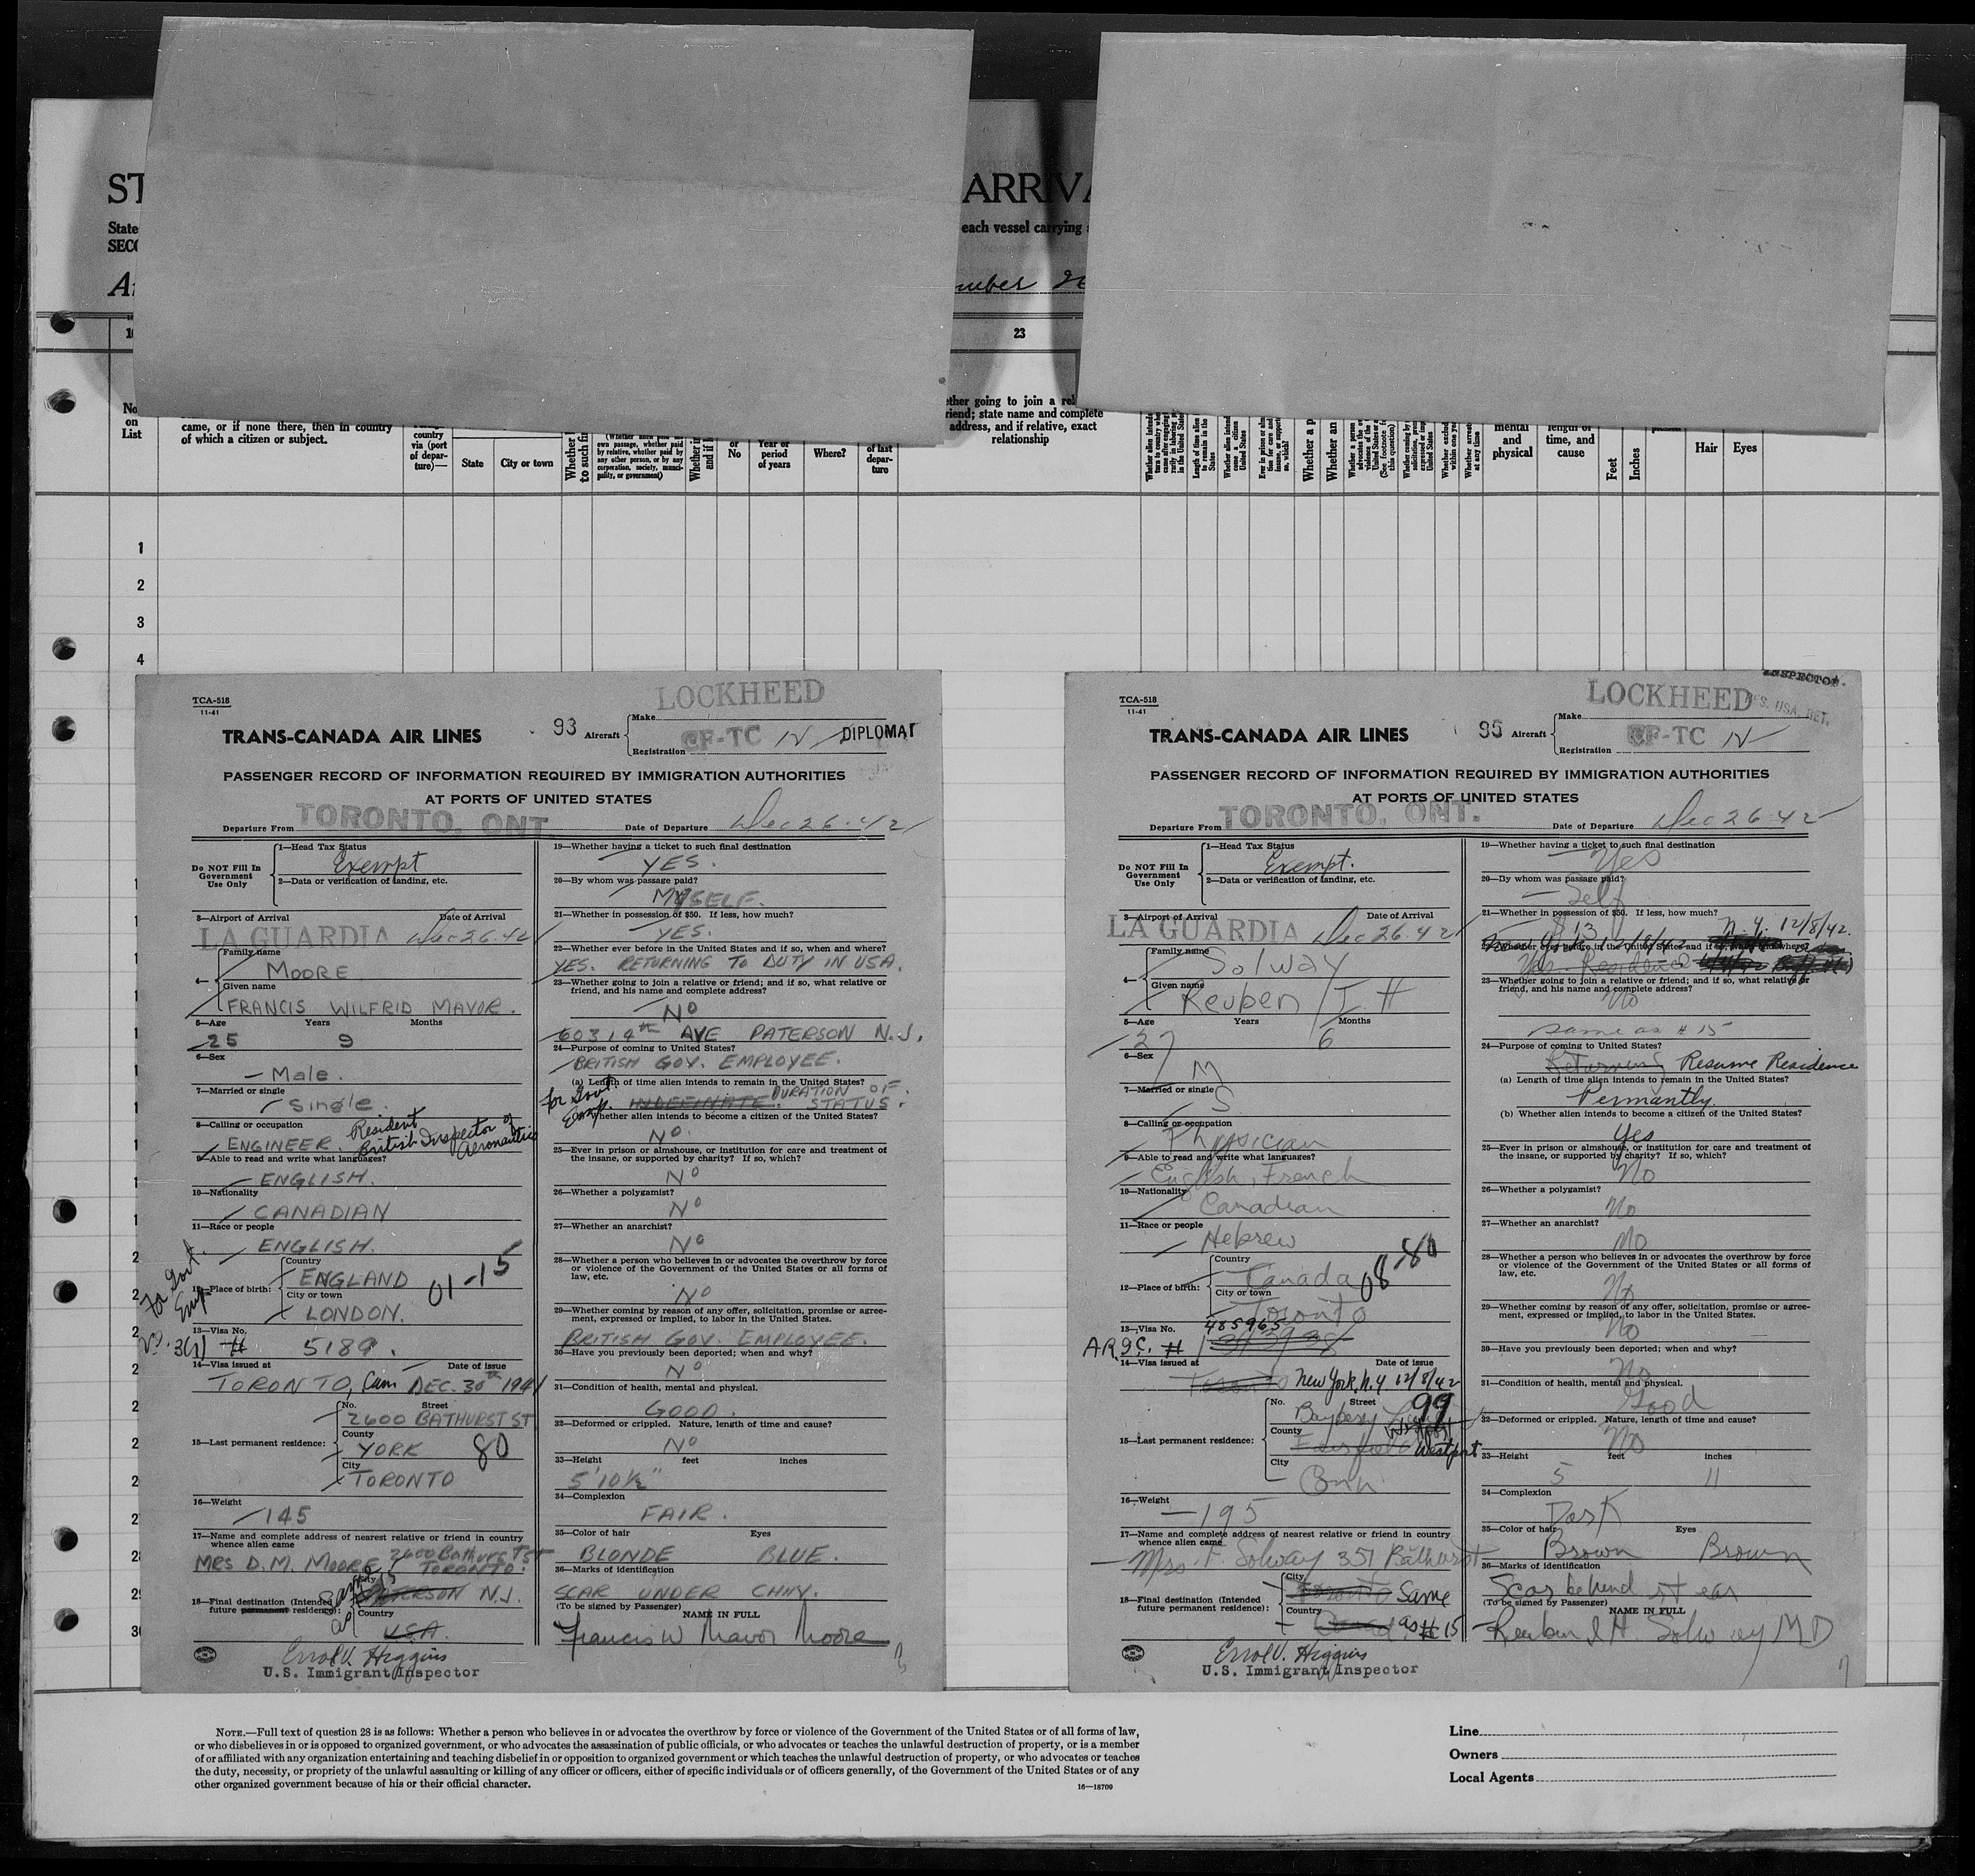 ST
ARRIVA
State
each vessel carrying
SECO
mber 26
23
No.
on
List
came, or if none there, then in country
of which a citizen or subject.
country
via (port
of depar-
ture)—
State
City or town
own passage, whether paid
by relative, whether paid by
any other person, or by any
corporation, society, munici-
pality, or government)
or
No
Year or
period
of years
Where?
of last
depar-
ture
ether going to join a rel
riend; state name and complete
address, and if relative, exact
relationship
mental
and
physical
length of
time, and
cause
Feet
Inches
Hair
Eyes
1
2
3
4
TCA-518
11-41
LOCKHEED
TRANS-CANADA AIR LINES
93 Aircraft
Make
Registration CF-TC N DIPLOMAT
PASSENGER RECORD OF INFORMATION REQUIRED BY IMMIGRATION AUTHORITIES
AT PORTS OF UNITED STATES
Departure From TORONTO, ONT. Date of Departure Dec 26-42
Do NOT Fill In
Government
Use Only
1—Head Tax Status
Exempt
2—Data or verification of landing, etc.
3—Airport of Arrival Date of Arrival
LA GUARDIA Dec 26.42
4— Family name
MOORE
Given name
FRANCIS WILFRID MAVOR.
5—Age Years Months
25 9
6—Sex
Male.
7—Married or single
Single.
8—Calling or occupation
ENGINEER. Resident British Inspector of Aeronautics
9—Able to read and write what languages?
ENGLISH.
10—Nationality
CANADIAN
11—Race or people
ENGLISH.
for Govt. Emp.
12—Place of birth: Country
ENGLAND 01-15
City or town
LONDON.
13—Visa No.
V. 3(1) # 5189.
14—Visa issued at Date of issue
TORONTO, Can DEC. 30th 1941
15—Last permanent residence: No. Street
2600 BATHURST ST
County
YORK 80
City
TORONTO
16—Weight
145
17—Name and complete address of nearest relative or friend in country
whence alien came
MRS D. M. MOORE 2600 Bathurst St TORONTO.
18—Final destination (Intended
future permanent residence): City
PATERSON N.J.
Country
U.S.A.
Errol V. Higgins
U.S. Immigrant Inspector
19—Whether having a ticket to such final destination
YES.
20—By whom was passage paid?
MYSELF.
21—Whether in possession of $50. If less, how much?
YES.
22—Whether ever before in the United States and if so, when and where?
YES. RETURNING TO DUTY IN USA.
23—Whether going to join a relative or friend; and if so, what relative or
friend, and his name and complete address?
NO
603 14th AVE PATERSON N.J.
24—Purpose of coming to United States?
BRITISH GOV. EMPLOYEE.
(a) Length of time alien intends to remain in the United States?
for Govt Emp. INDEFINATE. DURATION OF STATUS.
(b) Whether alien intends to become a citizen of the United States?
NO.
25—Ever in prison or almshouse, or institution for care and treatment of
the insane, or supported by charity? If so, which?
NO
26—Whether a polygamist?
NO
27—Whether an anarchist?
NO
28—Whether a person who believes in or advocates the overthrow by force
or violence of the Government of the United States or all forms of
law, etc.
NO
29—Whether coming by reason of any offer, solicitation, promise or agree-
ment, expressed or implied, to labor in the United States.
BRITISH GOV. EMPLOYEE.
30—Have you previously been deported; when and why?
NO
31—Condition of health, mental and physical.
GOOD.
32—Deformed or crippled. Nature, length of time and cause?
NO
33—Height feet inches
5' 10½"
34—Complexion
FAIR.
35—Color of hair Eyes
BLONDE BLUE.
36—Marks of identification
SCAR UNDER CHNY.
(To be signed by Passenger) NAME IN FULL
Francis W Mavor Moore
TCA-518
11-41
INSPECTOR.
LOCKHEED
TRANS-CANADA AIR LINES
95 Aircraft
Make
Registration CF-TC N
PASSENGER RECORD OF INFORMATION REQUIRED BY IMMIGRATION AUTHORITIES
AT PORTS OF UNITED STATES
Departure From TORONTO, ONT. Date of Departure Dec 26-42
Do NOT Fill In
Government
Use Only
1—Head Tax Status
Exempt.
2—Data or verification of landing, etc.
3—Airport of Arrival Date of Arrival
LA GUARDIA Dec 26.42
4— Family name
Solway
Given name
Reuben I H
5—Age Years Months
27 6
6—Sex
M
7—Married or single
S
8—Calling or occupation
Physician
9—Able to read and write what languages?
English, French
10—Nationality
Canadian
11—Race or people
Hebrew
12—Place of birth: Country
Canada 08-80
City or town
Toronto
13—Visa No. 485965
14—Visa issued at Date of issue
Toronto New York, N.Y. 12/8/42
15—Last permanent residence: No. Street
99
County
Fairfield Westport
City
Conn
16—Weight
195
17—Name and complete address of nearest relative or friend in country
whence alien came
Mrs. F. Solway 351 Bathurst
18—Final destination (Intended
future permanent residence): City
Toronto Same
Country
as #15
Errol V. Higgins
U.S. Immigrant Inspector
19—Whether having a ticket to such final destination
Yes
20—By whom was passage paid?
Self
21—Whether in possession of $50. If less, how much?
$13 N.Y. 12/8/42.
22—Whether ever before in the United States and if so, when and where?
Yes. Residence
23—Whether going to join a relative or friend; and if so, what relative or
friend, and his name and complete address?
No
same as #15
24—Purpose of coming to United States?
Returning Resume Residence
(a) Length of time alien intends to remain in the United States?
Permantly
(b) Whether alien intends to become a citizen of the United States?
Yes
25—Ever in prison or almshouse, or institution for care and treatment of
the insane, or supported by charity? If so, which?
No
26—Whether a polygamist?
No
27—Whether an anarchist?
No
28—Whether a person who believes in or advocates the overthrow by force
or violence of the Government of the United States or all forms of
law, etc.
No
29—Whether coming by reason of any offer, solicitation, promise or agree-
ment, expressed or implied, to labor in the United States.
No
30—Have you previously been deported; when and why?
No
31—Condition of health, mental and physical.
Good
32—Deformed or crippled. Nature, length of time and cause?
No
33—Height feet inches
5 11
34—Complexion
Dark
35—Color of hair Eyes
Brown Brown
36—Marks of identification
Scar behind rt ear
(To be signed by Passenger) NAME IN FULL
Reuben I H. Solway MD
NOTE.—Full text of question 28 is as follows: Whether a person who believes in or advocates the overthrow by force or violence of the Government of the United States or of all forms of law,
or who disbelieves in or is opposed to organized government, or who advocates the assassination of public officials, or who advocates or teaches the unlawful destruction of property, or is a member
of or affiliated with any organization entertaining and teaching disbelief in or opposition to organized government or which teaches the unlawful destruction of property, or who advocates or teaches
the duty, necessity, or propriety of the unlawful assaulting or killing of any officer or officers, either of specific individuals or of officers generally, of the Government of the United States or of any
other organized government because of his or their official character.
16—18709
Line
Owners
Local Agents